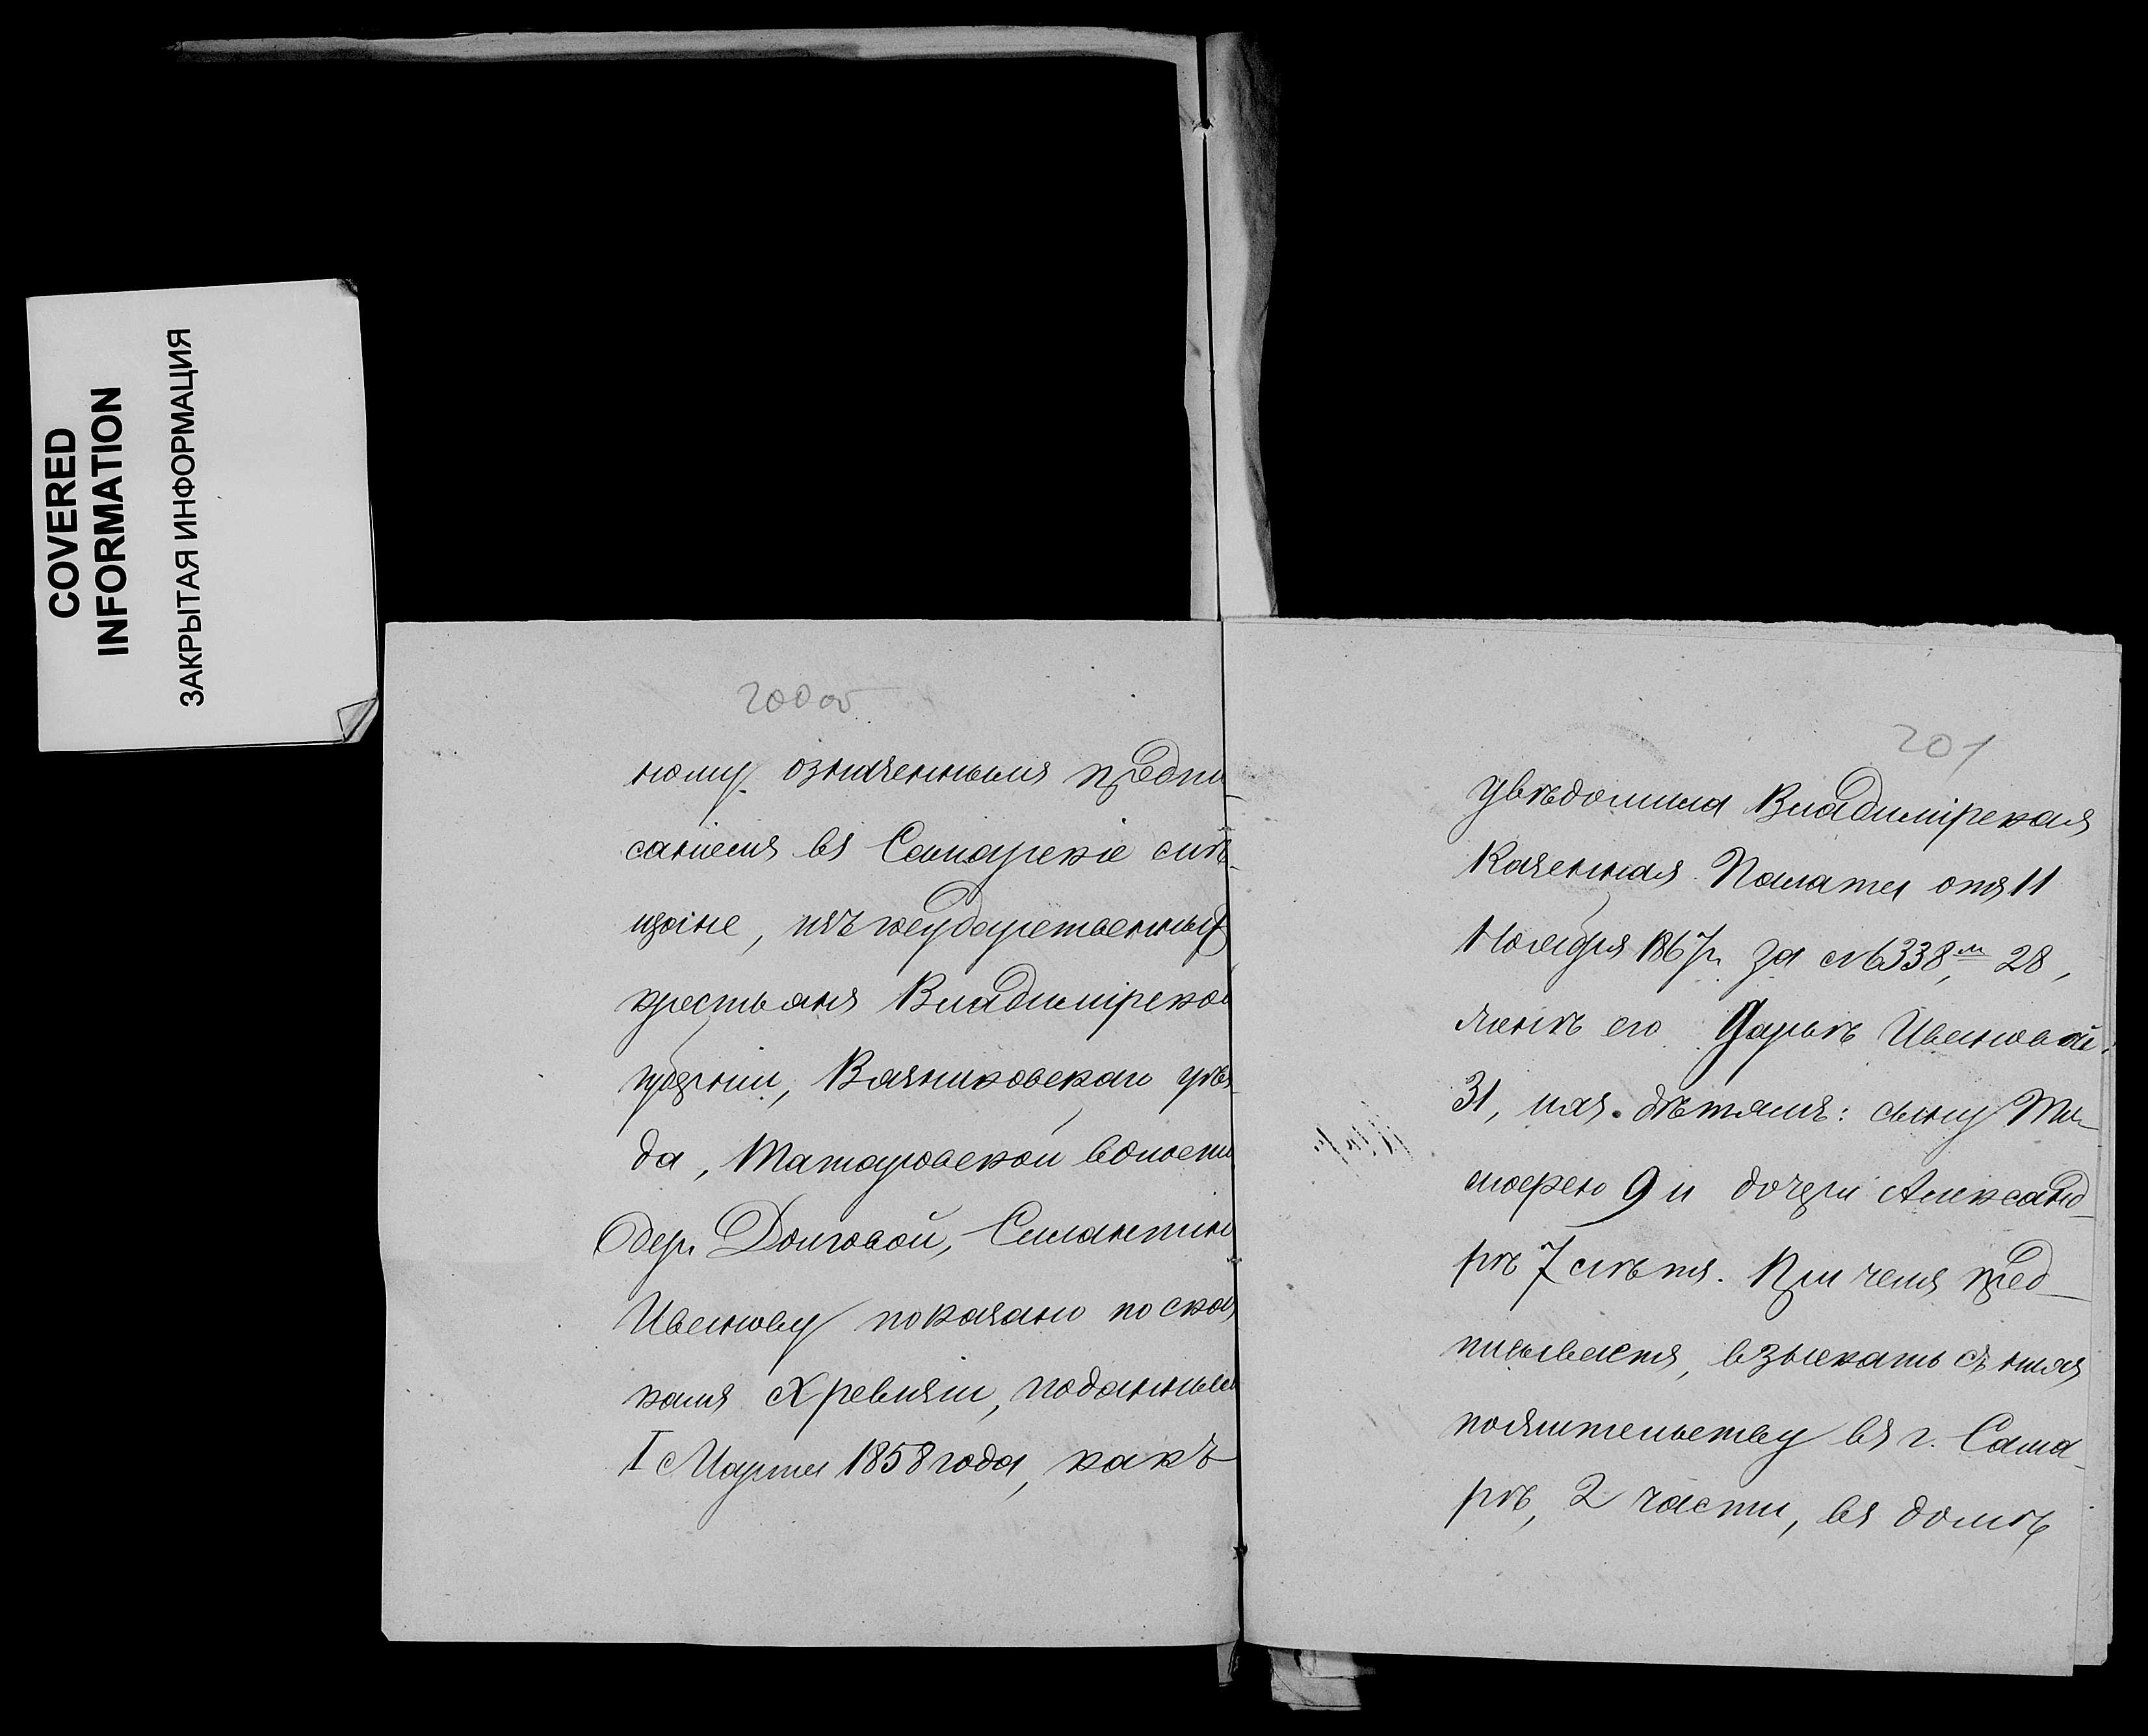 COVERED
INFORMATION
ЗАКРЫТАЯ ИНФОРМАЦИЯ
200 об
ному означеннымъ предпи-
саніемъ въ Самарскіе мѣ-
щане, изъ государственныхъ
крестьянъ Владимірской
губерніи, Вязниковскаго уѣз-
да, Татаровской волости
дер. Долговой, Силантію
Иванову показано по сказ
камъ X ревизіи, поданнымъ
1 Марта 1858 года, какъ
201
увѣдомила Владимірская
Казенная Палата отъ 11
Ноября 1867 г. за № 6338, м 28,
женѣ его Дарьѣ Ивановой
31, ихъ дѣтямъ: сыну Ти-
мофею 9 и дочери Александ-
рѣ 7 лѣтъ. При чемъ пред-
писывается, взыскать съ нихъ
по жительству въ г. Сама-
рѣ, 2 части, въ домѣ